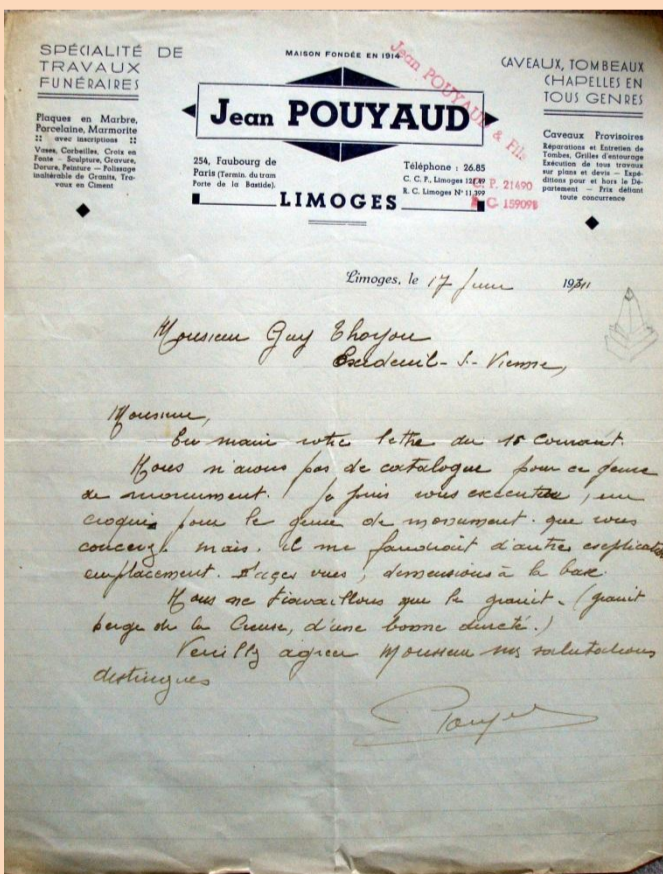 MAISON FONDÉE EN 1914
SPÉCIALITÉ DE
TRAVAUX
FUNÉRAIRES
Plaques en Marbre,
Porcelaine, Marmorite
:: avec inscriptions ::
Vases, Corbeilles, Croix en
Fonte — Sculpture, Gravure,
Dorure, Peinture — Polissage
inaltérable de Granits, Tra-
vaux en Ciment
Jean POUYAUD
254, Faubourg de
Paris (Termin. du tram
Porte de la Bastide).
Téléphone : 26.85
C. C. P. Limoges
R. C. Limoges N° 11.399
LIMOGES
Jean POUYAUD & Fils
C. P. 21490
R. C. 159098
CAVEAUX, TOMBEAUX
CHAPELLES EN
TOUS GENRES
Caveaux Provisoires
Réparations et Entretien de
Tombes, Grilles d'entourage
Exécution de tous travaux
sur plans et devis — Expé-
ditions pour et hors le Dé-
partement — Prix défiant
toute concurrence
Limoges, le 17 Juin 19
Monsieur Guy Thoyou
Exideuil-S-Vienne,
Monsieur,
En main votre lettre du 15 courant.
Nous n'avons pas de catalogue pour ce genre
de monument. Je puis vous executer, un
croquis pour le genre de monument que vous
concerz. mais. il me faudroit d'autres esplications
emplacement. vues, demensions à la base.
Nous ne travaillons que le granit. (granit
berge de la Creuse, d'une bonne dureté.)
Veuillz agreer Monsieur mes salutations
distingues